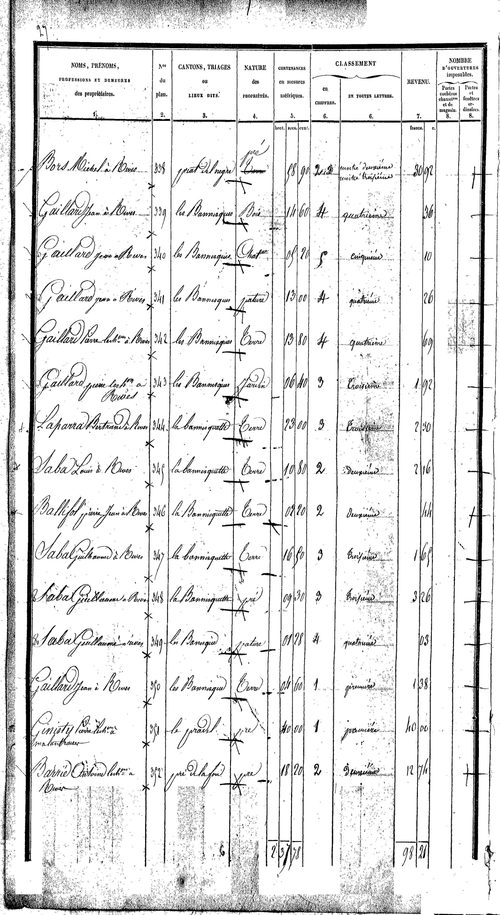 NOMS, PRÉNOMS, PROFESSIONS ET DEMEURES des propriétaires. 1.
Nos du plan. 2.
CANTONS, TRIAGES ou LIEUX DITS. 3.
NATURE des PROPRIÉTÉS. 4.
CONTENANCES en mesures métriques. 5.
CLASSEMENT
en CHIFFRES. 6.
EN TOUTES LETTRES. 6.
REVENU. 7.
NOMBRE D'OUVERTURES imposables.
Portes cochères charretères et de magasin. 8.
Portes et fenêtres ordinaires. 8.
hect. ares. cent. francs. c.
pré
Bors Michel à Rives 338 prat del negre 58 90 2.3 moitié deuxième moitié troisième 20 92
Gaillard Jean à Rives 339 les Bannieques Bois 14 60 4 quatrieme 36
Gaillard jean a Rives 340 les Bannieques 05 20 5 Cinquieme 10
Gaillard jean a Rives 341 les Bannieques pature 13 00 4 quatrieme 26
Gaillard Pierre à Rives 342 les Bannieques Terre 13 80 4 quatrieme 69
Gaillard pierre a Rives 343 les Bannieques Jardin 06 40 3 Troisieme 1 92
Laparra Bertrand à Rives 344 la banniequette Terre 23 00 3 troisieme 2 30
Saba Louis à Rives 345 la banniequette Terre 10 80 2 deuxième 2 16
pierre Jean à Rives 346 la Banniequette Terre 02 20 2 Deuxième 44
Saba Guillaume à Rives 347 la banniequette terre 16 50 3 troisieme 1 65
Saba Guillaume a Rives 348 la Banniequette pré 09 30 3 troisieme 3 26
Saba Guillaume a rives 349 les Banniques pature 01 28 4 quatrieme 03
Gaillard Jean à Rives 350 les Banniques Terre 04 60 1 premiere 1 38
Ginisty Pierre 351 le pradel pré 40 00 1 premiere 40 00
Barrié Antoine a Rives 352 pre de la fon pre 18 20 2 deuxième 12 74
2 37 78 98 21